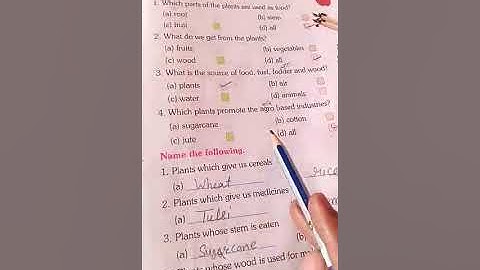 1. Which parts of the plants are used as food?
(a) root (b) stem
(c) fruit (d) all
2. What do we get from the plants?
(a) fruits (b) vegetables
(c) wood (d) all
3. What is the source of food, fuel, fodder and wood?
(a) plants (b) air
(c) water (d) animals
4. Which plants promote the agro based industries?
(a) sugarcane (b) cotton
(c) jute (d) all
Name the following.
1. Plants which give us cereals
(a) Wheat
2. Plants which give us medicines
(a) Tulsi
3. Plants whose stem is eaten
(a) Sugarcane (b)
Plants whose wood is used for